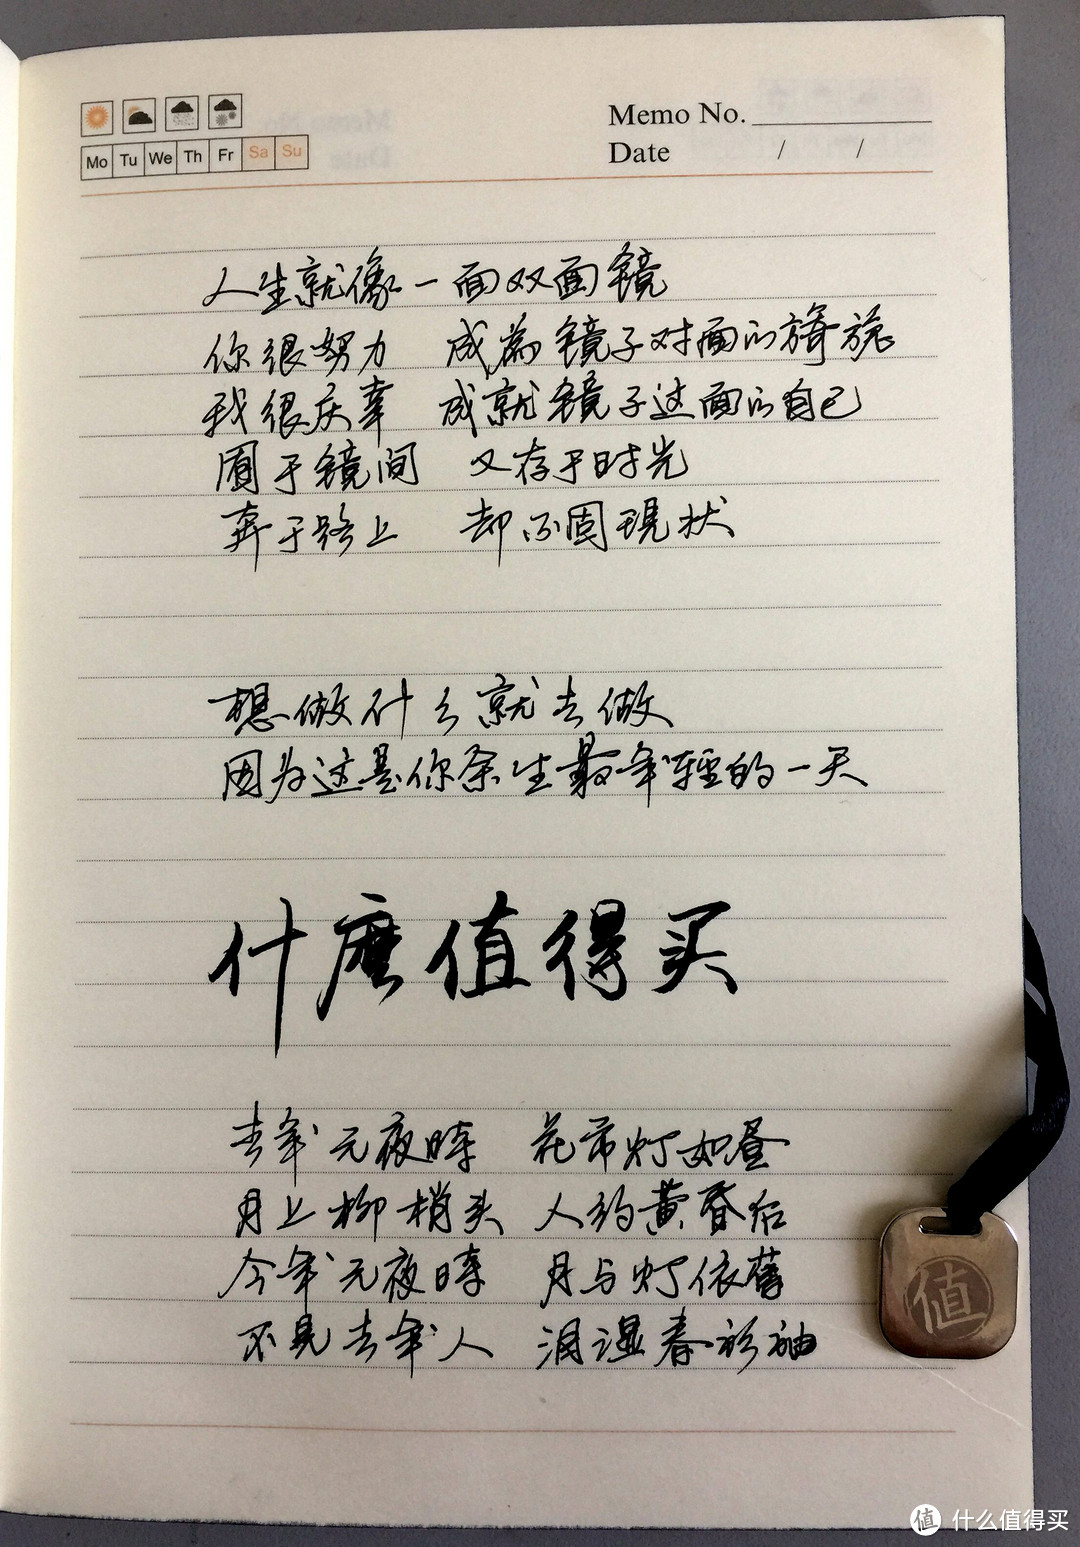 Mo Tu We Th Fr Sa Su
Memo No.
Date / /
人生就像一面双面镜
你很努力 成為镜子对面的旖旎
我很庆幸 成就镜子这面的自己
囿于镜间 又存于时光
奔于路上 却不固現状
想做什么就去做
因为这是你余生最年轻的一天
什麽值得买
去年元夜時 花市灯如昼
月上柳梢头 人约黄昏后
今年元夜時 月与灯依舊
不見去年人 泪湿春衫袖
值
值 什么值得买